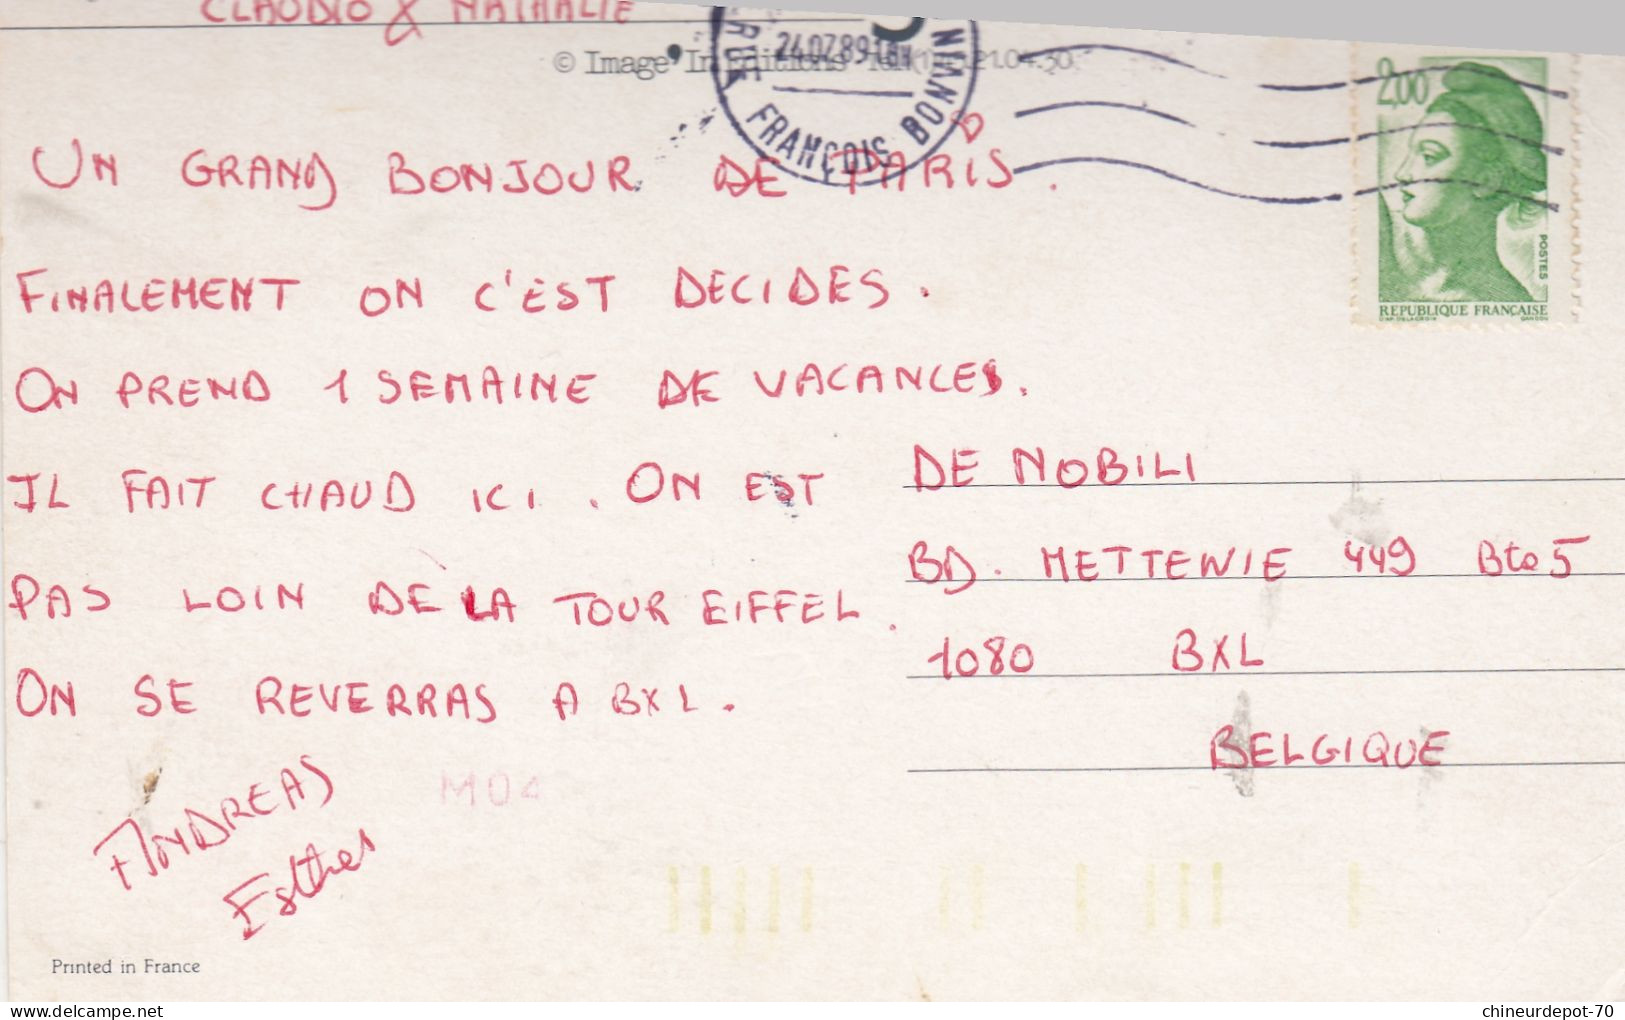 CLAUDIO & NATHALIE
© Image In Editions Tel.
24 07 89
RUE FRANÇOIS BONVIN
2,00
POSTES
REPUBLIQUE FRANÇAISE
UN GRAND BONJOUR DE PARIS.
FINALEMENT ON C'EST DECIDES.
ON PREND 1 SEMAINE DE VACANCES.
IL FAIT CHAUD ICI. ON EST
PAS LOIN DE LA TOUR EIFFEL.
ON SE REVERRAS A BXL.
ANDREAS
Esther
DE NOBILI
BD. METTEWIE 449 Bte 5
1080 BXL
BELGIQUE
Printed in France
chineurdepot-70